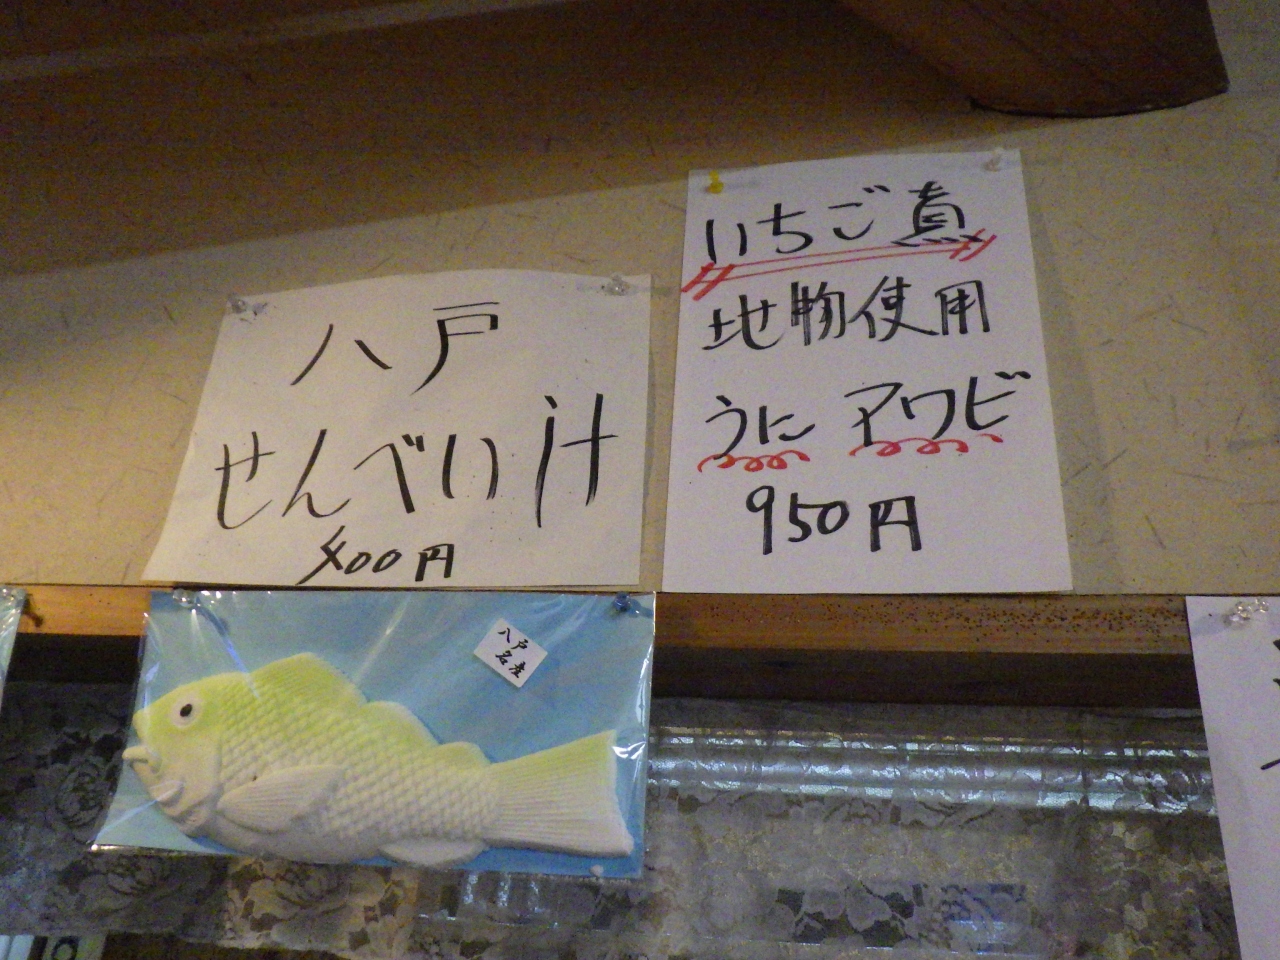 八戸
せんべい汁
400円
いちご煮
地物使用
うに アワビ
950円
八戸
名産